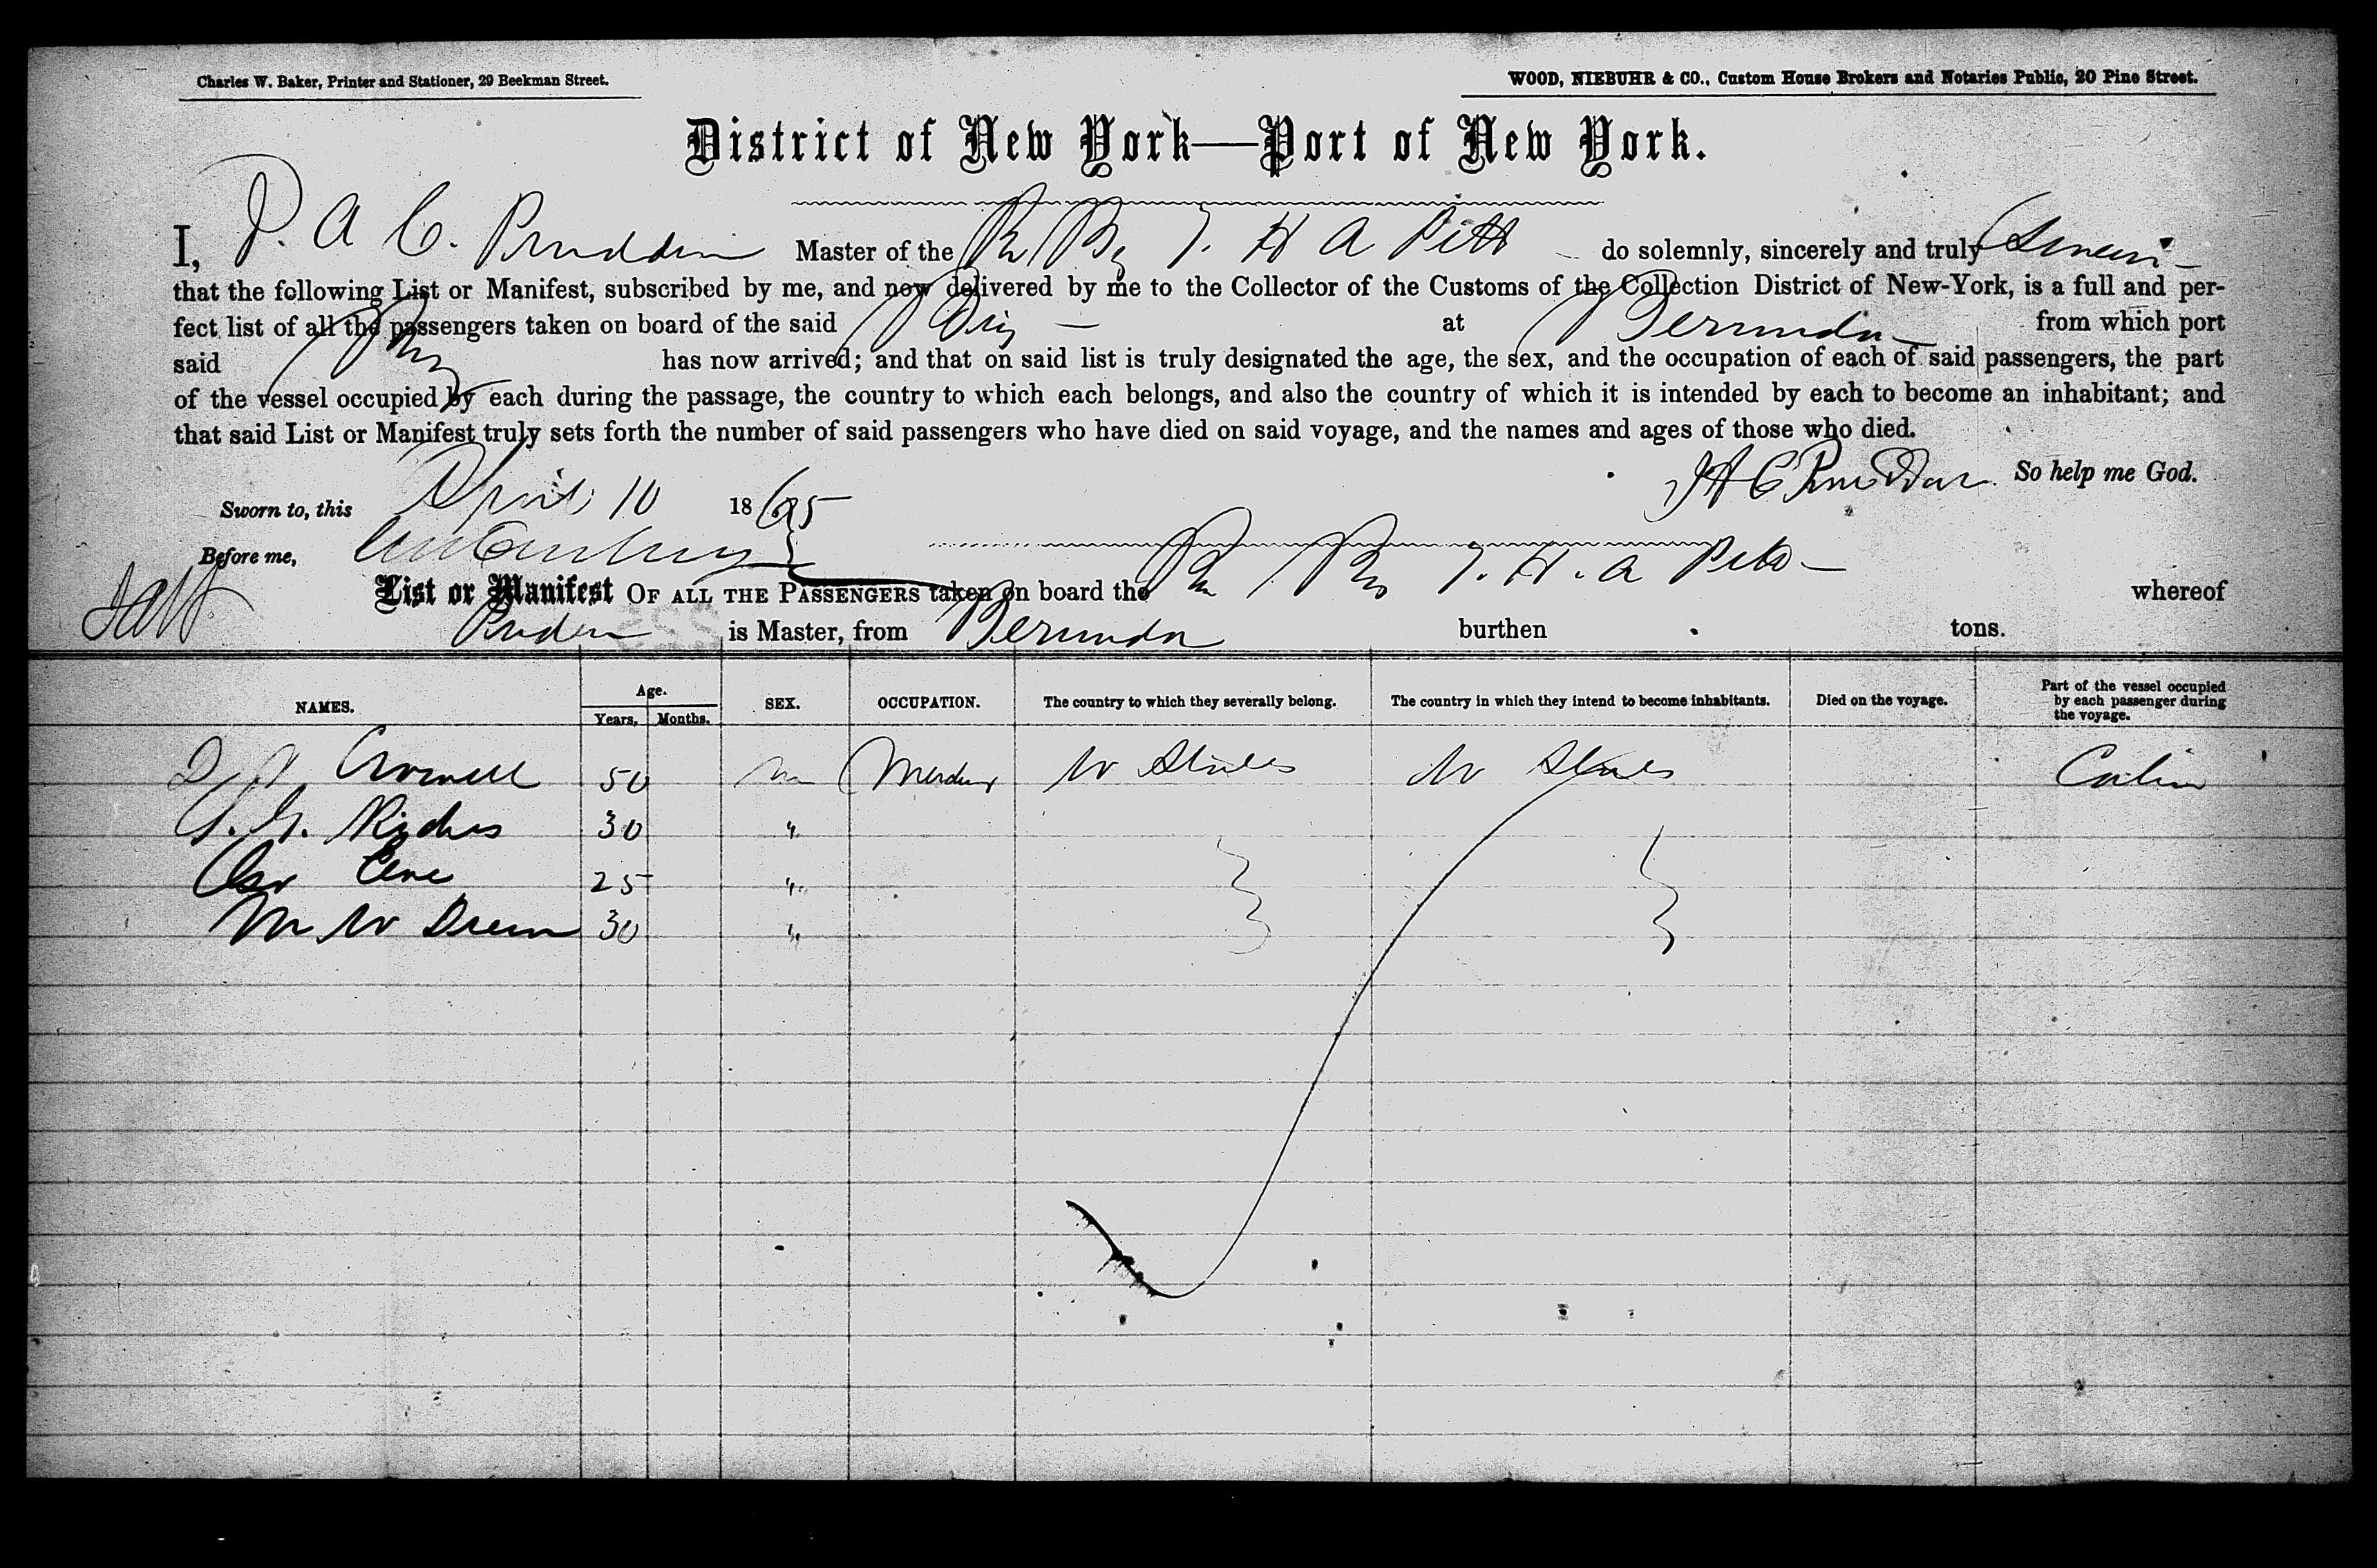 Charles W. Baker, Printer and Stationer, 29 Beekman Street.
WOOD, NIEBUHR & CO., Custom House Brokers and Notaries Public, 20 Pine Street.
District of New York—Port of New York.
I, A C. Master of the T. H A Pitt do solemnly, sincerely and truly
that the following List or Manifest, subscribed by me, and now delivered by me to the Collector of the Customs of the Collection District of New-York, is a full and per-
fect list of all the passengers taken on board of the said Brig at Bermuda from which port
said Brig has now arrived; and that on said list is truly designated the age, the sex, and the occupation of each of said passengers, the part
of the vessel occupied by each during the passage, the country to which each belongs, and also the country of which it is intended by each to become an inhabitant; and
that said List or Manifest truly sets forth the number of said passengers who have died on said voyage, and the names and ages of those who died.
So help me God.
Sworn to, this April 10 1865
Before me,
List or Manifest OF ALL THE PASSENGERS taken on board the T. H. A whereof
is Master, from Bermuda burthen tons.
NAMES. Age. Years. Months. SEX. OCCUPATION. The country to which they severally belong. The country in which they intend to become inhabitants. Died on the voyage. Part of the vessel occupied by each passenger during the voyage.
Crowell 50 m U States U States Cabin
30 "
25 "
M W 30 "